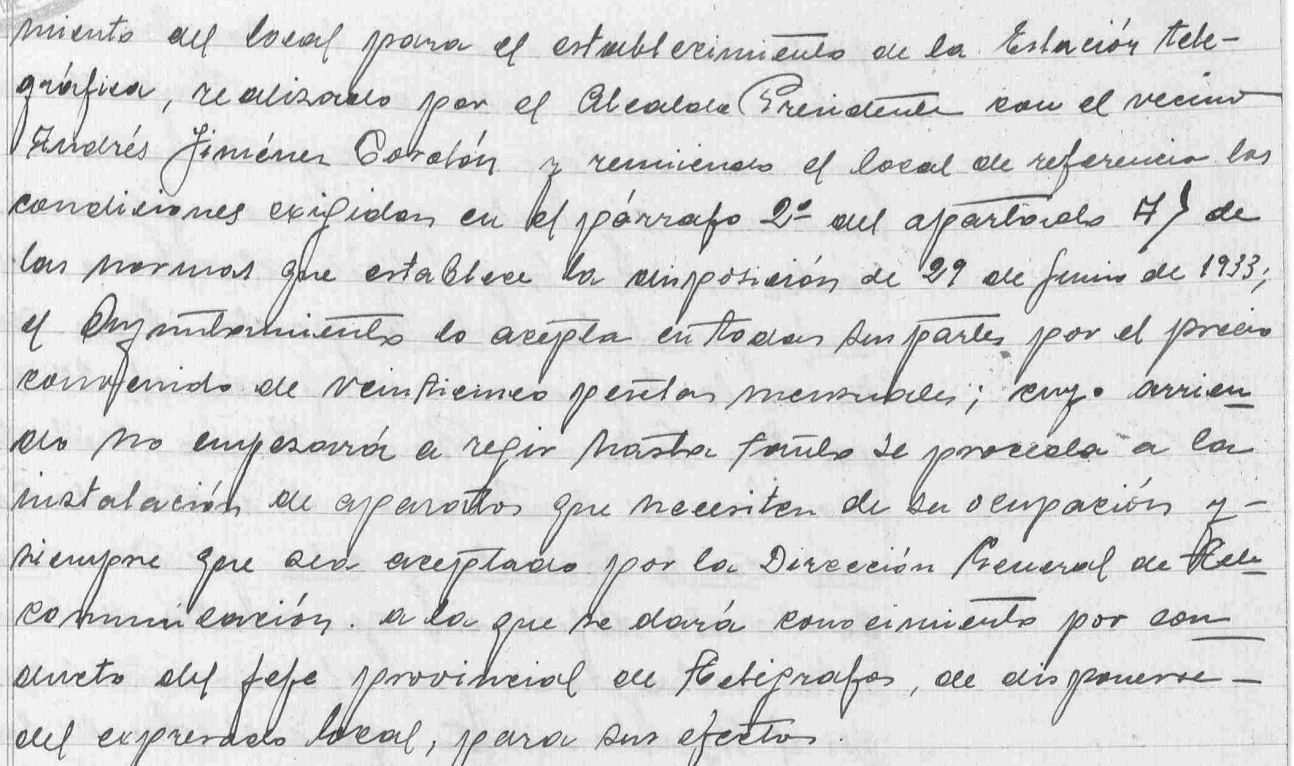 miento del local para el establecimiento de la Estación tele-
gráfica, realizado por el Alcalde Presidente con el vecino
Andrés Jiménez Cordón y reuniendo el local de referencia las
condiciones exigidas en el párrafo 2º del apartado 7) de
las normas que establece la disposición de 29 de Junio de 1933;
el Ayuntamiento lo acepta en todas sus partes por el precio
convenido de veinticinco pesetas mensuales; cuyo arrien
do no empezará a regir hasta tanto se proceda a la
instalación de aparatos que necesiten de su ocupación y-
siempre que sea aceptado por la Dirección General de Tele
comunicación. a la que se dará conocimiento por con
ducto del jefe provincial de Telégrafos, de disponerse-
del expresado local, para sus efectos.